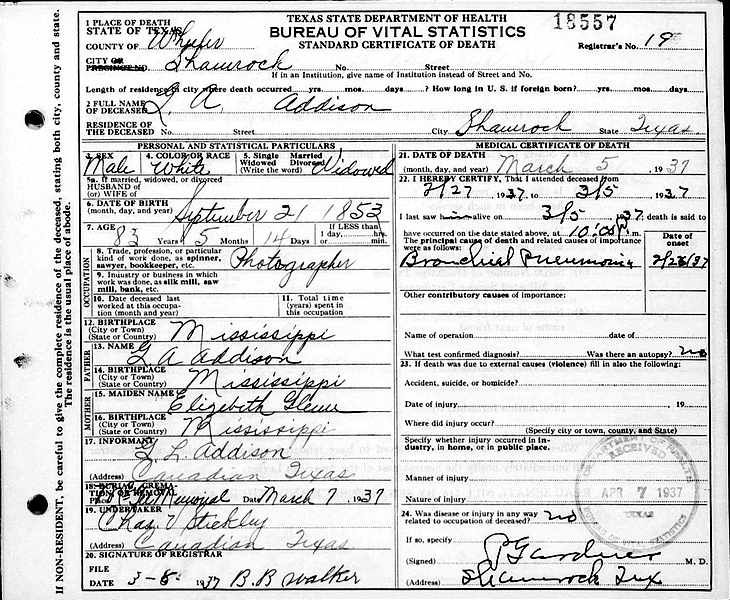 TEXAS STATE DEPARTMENT OF HEALTH
BUREAU OF VITAL STATISTICS
STANDARD CERTIFICATE OF DEATH
18557
Registrar's No. 19
1 PLACE OF DEATH
STATE OF TEXAS
COUNTY OF Wheeler
CITY OR PRECINCT NO. Shamrock No. Street
If in an Institution, give name of Institution instead of Street and No.
Length of residence in city where death occurred yrs. mos. days? How long in U. S. if foreign born? yrs. mos. days
2 FULL NAME OF DECEASED L. A. Addison
RESIDENCE OF THE DECEASED No. Street City Shamrock State Texas.
PERSONAL AND STATISTICAL PARTICULARS
3. SEX Male
4. COLOR OR RACE White
5. Single Married Widowed Divorced (Write the word) Widowed
5a. If married, widowed, or divorced
HUSBAND of
(or) WIFE of
6. DATE OF BIRTH
(month, day, and year) September 21 1853
7. AGE 83 Years 5 Months 14 Days If LESS than 1 day, hrs. or min.
OCCUPATION
8. Trade, profession, or particular kind of work done, as spinner, sawyer, bookkeeper, etc. Photographer
9. Industry or business in which work was done, as silk mill, saw mill, bank, etc.
10. Date deceased last worked at this occupation (month and year)
11. Total time (years) spent in this occupation
12. BIRTHPLACE
(City or Town)
(State or Country) Mississippi
FATHER
13. NAME G A Addison
14. BIRTHPLACE
(State or Country) Mississippi
MOTHER
15. MAIDEN NAME Elizabeth
16. BIRTHPLACE
(State or Country) Mississippi
17. INFORMANT G. L. Addison
(Address) Canadian Texas
18. BURIAL, CREMATION OR REMOVAL
Place Removal Date March 7, 1937
19. UNDERTAKER
Chas. Stickley
(Address) Canadian Texas
20. SIGNATURE OF REGISTRAR
FILE
DATE 3-8- 1937 B. B Walker
MEDICAL CERTIFICATE OF DEATH
21. DATE OF DEATH
(month, day, and year) March 5, 1937
22. I HEREBY CERTIFY, That I attended deceased from
2/27 1937, to 3/5 1937
I last saw him alive on 3/5 1937. death is said to
have occurred on the date stated above, at 10:05 P. m.
The principal cause of death and related causes of importance were as follows:
Date of onset
Bronchial Pneumonia 2/26/37
Other contributory causes of importance:
Name of operation date of
What test confirmed diagnosis? Was there an autopsy? no
23. If death was due to external causes (violence) fill in also the following:
Accident, suicide, or homicide?
Date of injury , 19
Where did injury occur?
(Specify city or town, county, and State)
Specify whether injury occurred in industry, in home, or in public place.
Manner of injury
Nature of injury
24. Was disease or injury in any way related to occupation of deceased? no
If so, specify
(Signed) P Gardner M. D.
(Address) Shamrock Tex
DEPARTMENT OF HEALTH
RECEIVED
APR 7 1937
TEXAS
BUREAU OF VITAL STATISTICS
IF NON-RESIDENT, be careful to give the complete residence of the deceased, stating both city, county and state.
The residence is the usual place of abode.